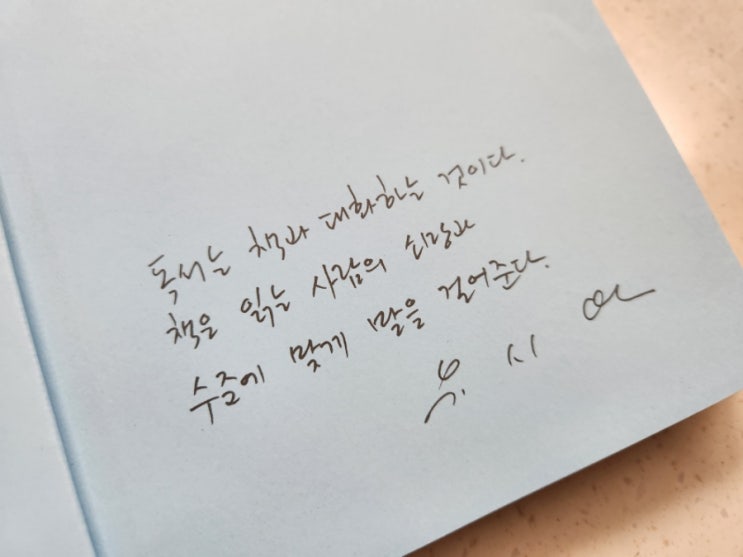 독서는 책과 대화하는 것이다.
책은 읽는 사람의 소망과
수준에 맞게 말을 걸어준다.
유 시 민